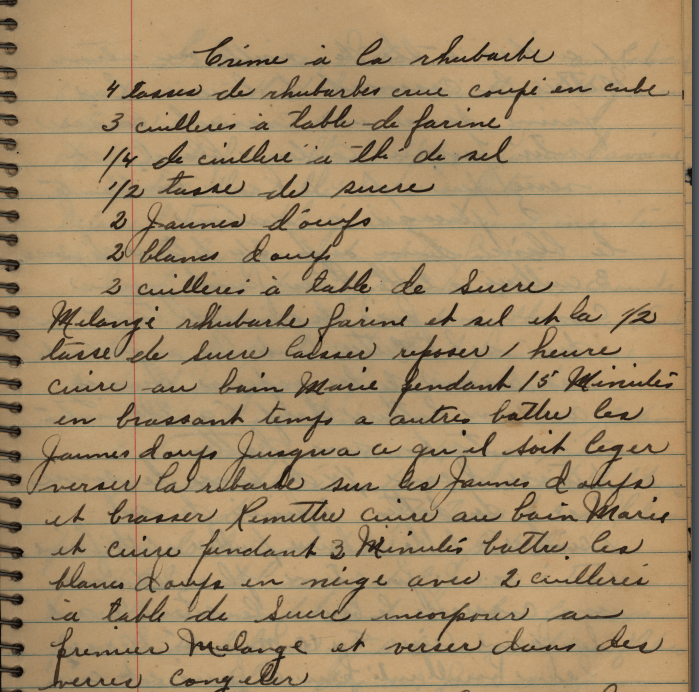 Crème à la rhubarbe
4 tasses de rhubarbes crue coupé en cube
3 cuilleres à table de farine
1/4 de cuillere à thé de sel
1/2 tasse de sucre
2 Jaunes d'oeufs
2 blancs d oeufs
2 cuilleres à table de Sucre
Melangé rhubarbe farine et sel et la 1/2
tasse de sucre laisser reposer 1 heure
cuire au bain Marie pendant 15 Minutes
en brassant temps a autres battre les
Jaunes doeufs Jusqua ce qu'il soit leger
verser la rubarbe sur les Jaunes d oeufs
et brasser Remettre cuire au bain Marie
et cuire pendant 3 Minutes battre les
blancs doeufs en neige avec 2 cuilleres
à table de Sucre au
premier Melange et verser dans des
verres congeler